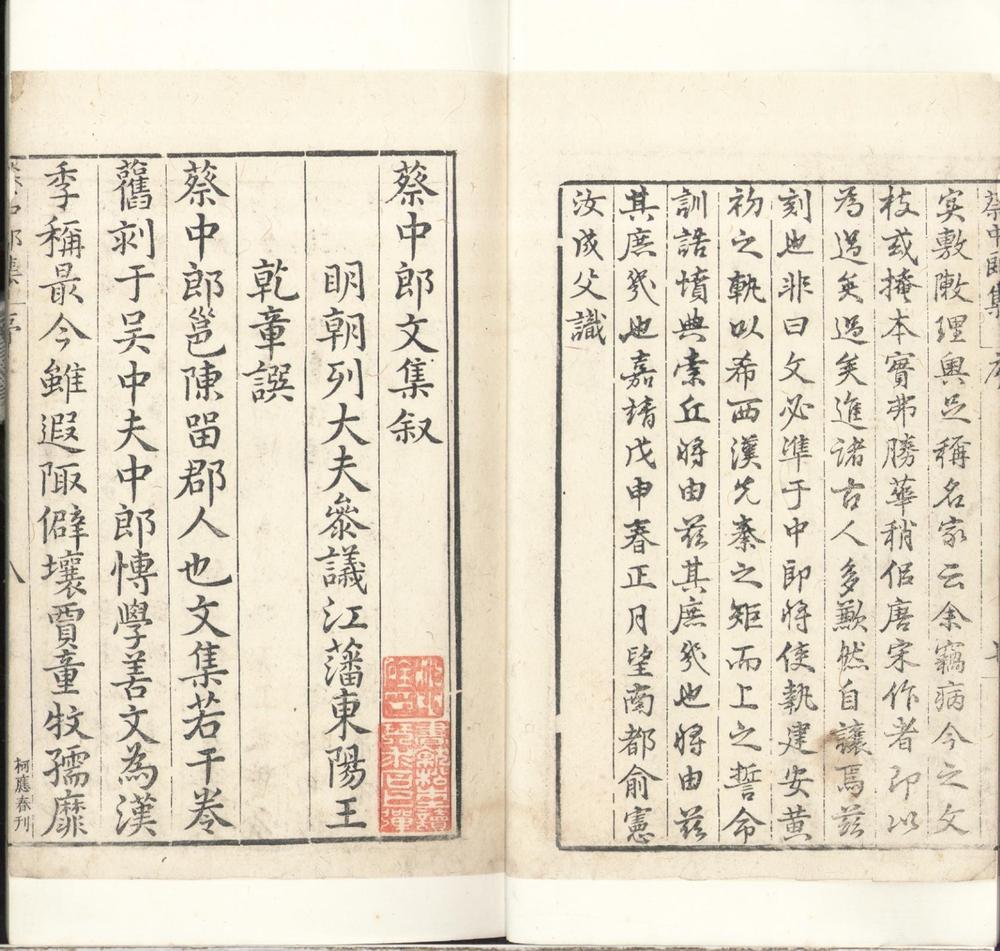 實敷陳理輿足稱名家云余竊病今之文
枝或掩本實弗勝華稍侶唐宋作者即以
為過矣過矣進諸古人多歉然自讓焉茲
刻也非曰文必準于中郎將使執建安黃
初之軌以希西漢先秦之矩而上之誓命
訓誥憤典索丘將由茲其庶幾也將由茲
其庶幾也嘉靖戊申春正月望南都俞憲
汝成父識
蔡中郎文集叙
明朝列大夫叅議江藩東陽王
乾章譔
蔡中郎邕陳留郡人也文集若干卷
舊刻于吳中夫中郎慱學善文為漢
季稱最今雖遐陬僻壤賈童牧孺靡
柯應春刊